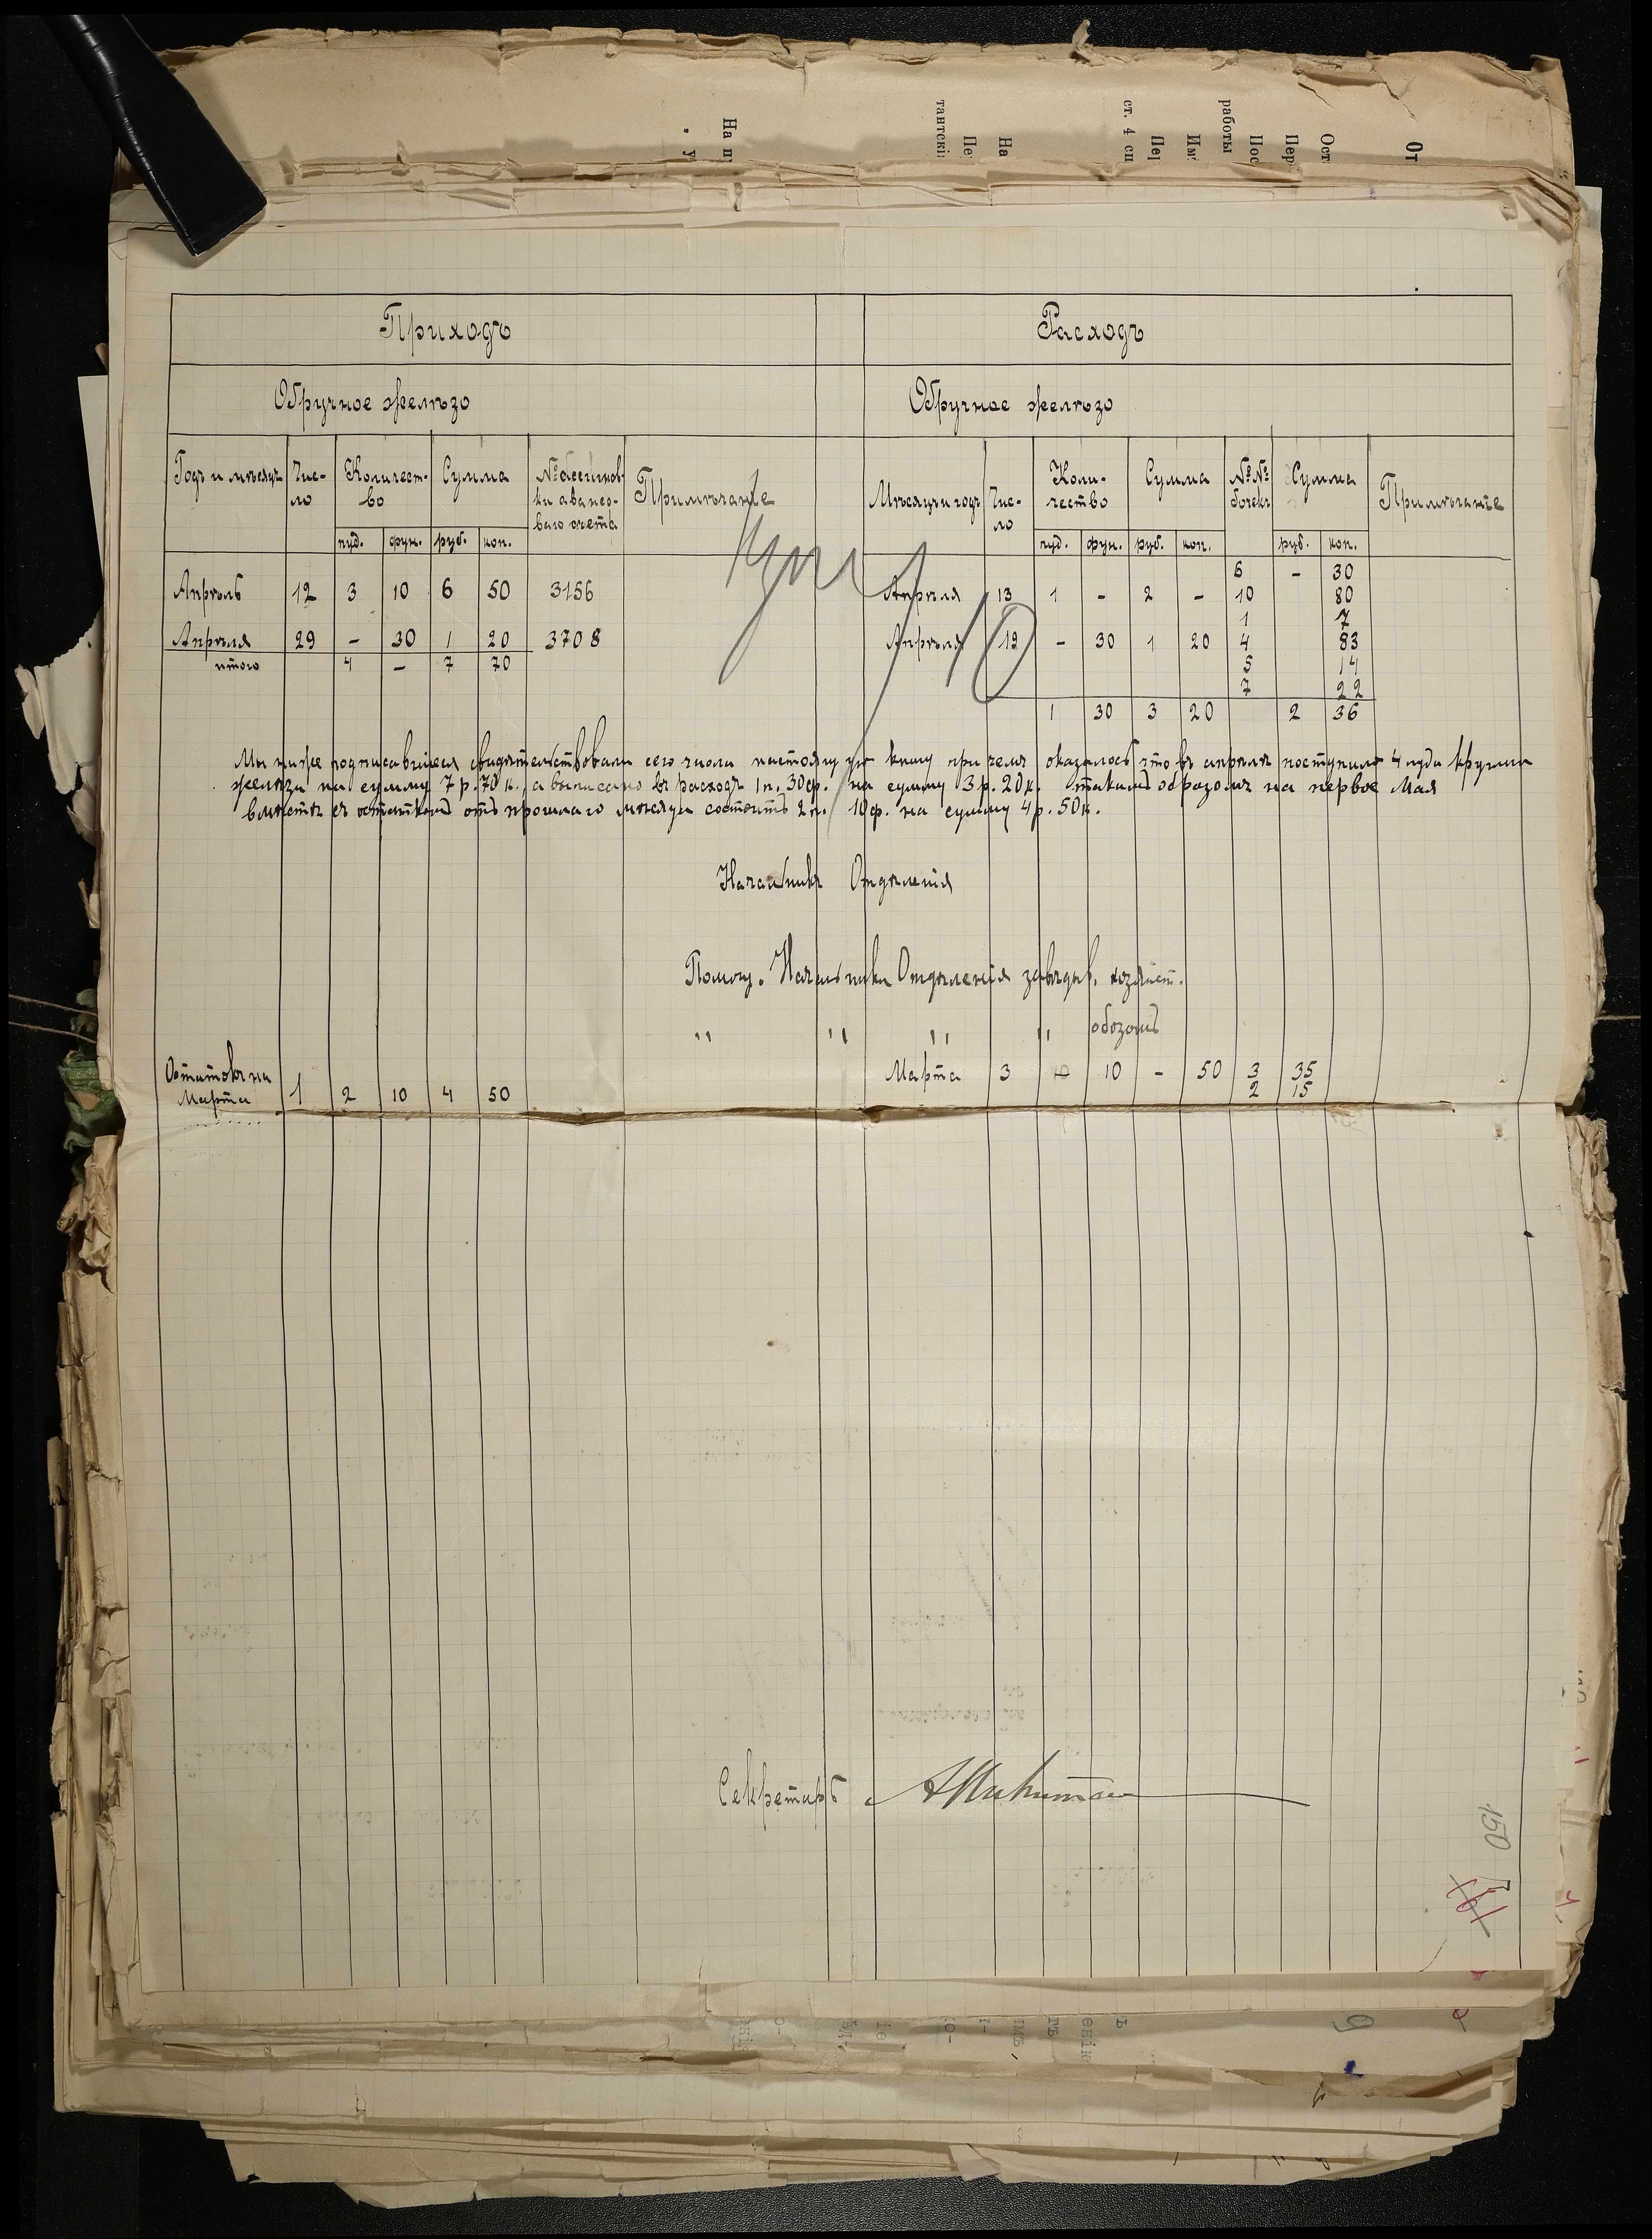 Приходъ
Расходъ
Обручное желѣзо
Обручное желѣзо
Годъ и мѣсяцъ Чис-ло Количест-во Сумма № ассигнов-ки авансо-ваго счета Примѣчаніе
Мѣсяцъ и годъ Чис-ло Коли-чество Сумма №№ бочекъ Сумма Примѣчаніе
пуд. фун. руб. коп.
пуд. фун. руб. коп. руб. коп.
6 - 30
Апрѣль 12 3 10 6 50 3156
Апрѣля 13 1 - 2 - 10 80
1 7
Апрѣля 29 - 30 1 20 3708
Апрѣля 19 - 30 1 20 4 83
итого 4 - 7 70
5 14
7 22
1 30 3 20 2 36
Мы ниже подписавшіеся свидѣтельствовали сего числа настоящую книгу при чемъ оказалось что въ апрѣлѣ поступило 4 пуда
желѣза на сумму 7 р. 70 к. а выписано въ расходъ 1 п. 30 ф. на сумму 3 р. 20 к. такимъ образомъ на первое Мая
вмѣстѣ съ остаткомъ отъ прошлаго мѣсяца состоитъ 2 п. 10 ф. на сумму 4 р. 50 к.
Начальникъ Отдѣленія
Помощ. Начальника Отдѣленія завѣдыв. хозяйст.
" " " " обозомъ
Остатокъ на
Марта 1 2 10 4 50
Марта 3 10 - 50 3 35
2 15
Секретарь
150
На п
тантскі
Пе
На
ст. 4 сп
Пе
Им
работы
Пос
Пер
Ост
От